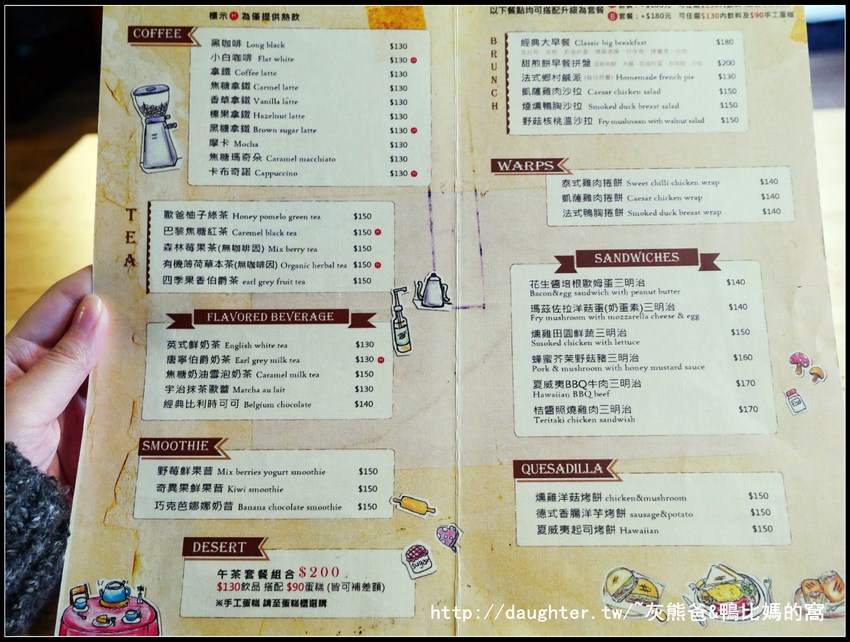 標示 H 為僅提供熱飲
COFFEE
黑咖啡 Long black $130
小白咖啡 Flat white $130 H
拿鐵 Coffee latte $130
焦糖拿鐵 Carmel latte $130
香草拿鐵 Vanilla latte $130
榛果拿鐵 Hazelnut latte $130
黑糖拿鐵 Brown sugar latte $130 H
摩卡 Mocha $130
焦糖瑪奇朵 Caramel macchiato $130
卡布奇諾 Cappuccino $130 H
TEA
歐爸柚子綠茶 Honey pomelo green tea $150
巴黎焦糖紅茶 Caremel black tea $150 H
森林莓果茶(無咖啡因) Mix berry tea $150
有機薄荷草本茶(無咖啡因) Organic herbal tea $150 H
四季果香伯爵茶 earl grey fruit tea $150
FLAVORED BEVERAGE
英式鮮奶茶 English white tea $130
唐寧伯爵奶茶 Earl grey milk tea $130 H
焦糖奶油雪泡奶茶 Caramel milk tea $150
宇治抹茶歐蕾 Matcha au lait $130
經典比利時可可 Belgium chocolate $140
SMOOTHIE
野莓鮮果昔 Mix berries yogurt smoothie $150
奇異果鮮果昔 Kiwi smoothie $150
巧克芭娜娜奶昔 Banana chocolate smoothie $150
DESERT
午茶套餐組合$200
$130飲品 搭配 $90蛋糕 (皆可補差額)
※手工蛋糕 請至蛋糕櫃選購
sugar
以下餐點均可搭配升級為套餐
套餐:+$180元 可任選$130內飲料及$90手工蛋糕
BRUNCH
經典大早餐 Classic big breakfast $180
甜煎餅早餐拼盤 $200
法式鄉村鹹派 Homemade french pie $130
凱薩雞肉沙拉 Caesar chicken salad $150
煙燻鴨胸沙拉 Smoked duck breast salad $150
野菇核桃溫沙拉 Fry mushroom with walnut salad $150
WARPS
泰式雞肉捲餅 Sweet chilli chicken wrap $140
凱薩雞肉捲餅 Caesar chicken wrap $140
法式鴨胸捲餅 Smoked duck breast wrap $140
SANDWICHES
花生醬培根歐姆蛋三明治 $140
Bacon&egg sandwich with peanut butter
瑪茲佐拉洋菇蛋(奶蛋素)三明治 $140
Fry mushroom with mozzarella cheese & egg
燻雞田園鮮蔬三明治 $150
Smoked chicken with lettuce
蜂蜜芥茉野菇豬三明治 $160
Pork & mushroom with honey mustard sauce
夏威夷BBQ牛肉三明治 $170
Hawaiian BBQ beef
桔醬照燒雞肉三明治 $170
Teritaki chicken sandwish
QUESADILLA
燻雞洋菇烤餅 chicken&mushroom $150
德式香腸洋芋烤餅 sausage&potato $150
夏威夷起司烤餅 Hawaiian $150
http://daughter.tw/~灰熊爸&鴨比媽的窩